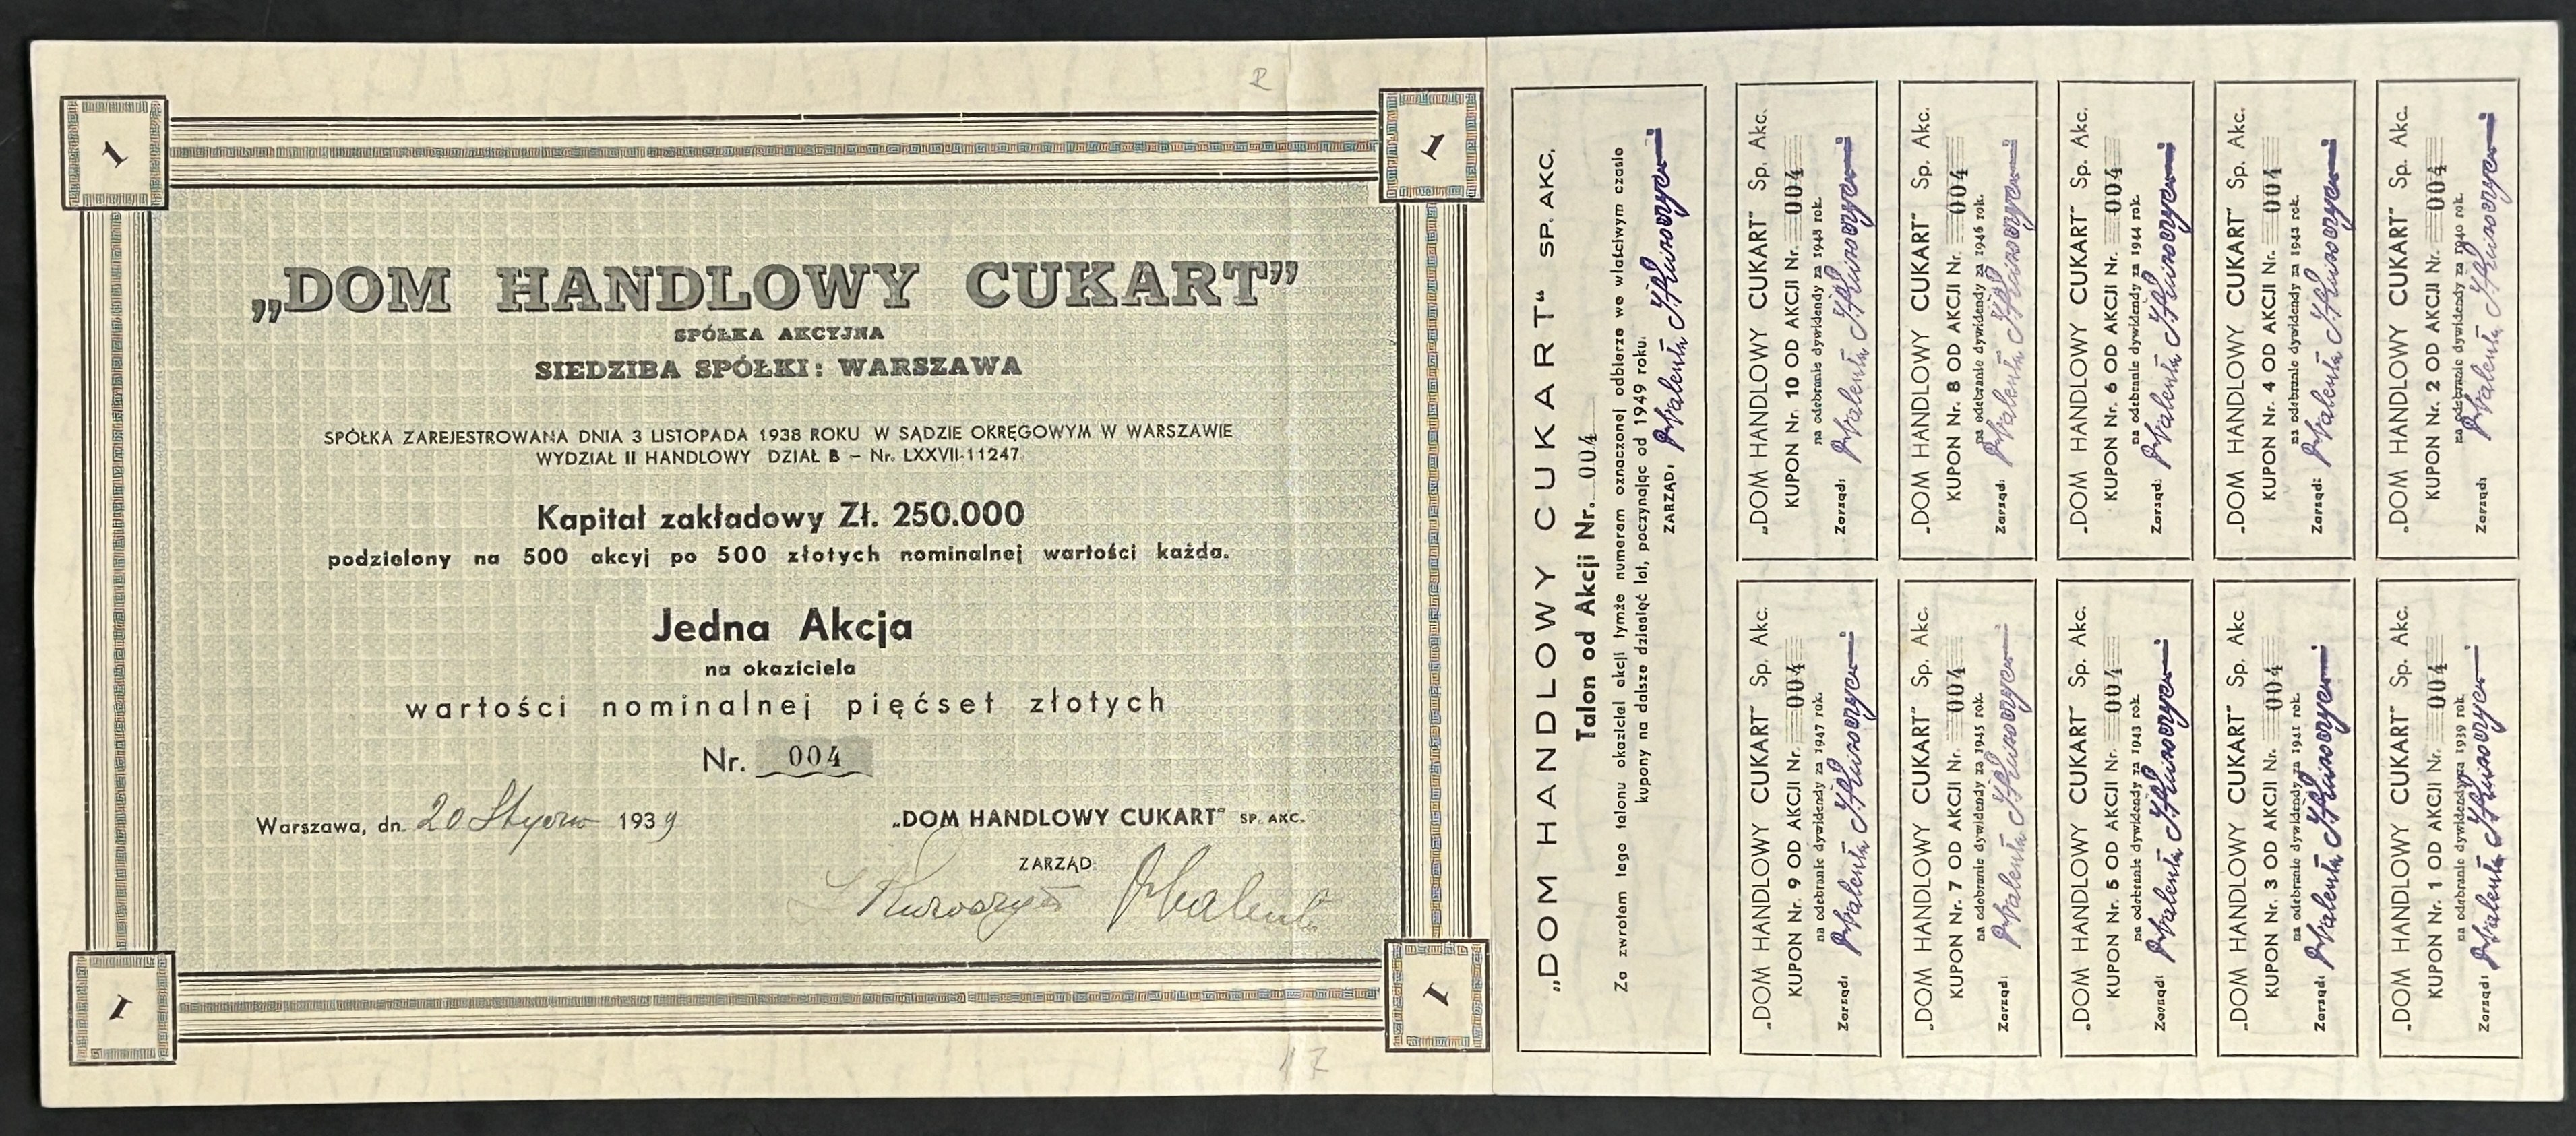 1
1
„DOM HANDLOWY CUKART”
SPÓŁKA AKCYJNA
SIEDZIBA SPÓŁKI: WARSZAWA
SPÓŁKA ZAREJESTROWANA DNIA 3 LISTOPADA 1938 ROKU W SĄDZIE OKRĘGOWYM W WARSZAWIE
WYDZIAŁ II HANDLOWY DZIAŁ B – Nr. LXXVII-11247
Kapitał zakładowy Zł. 250.000
podzielony na 500 akcyj po 500 złotych nominalnej wartości każda.
Jedna Akcja
na okaziciela
wartości nominalnej pięćset złotych
Nr. 004
Warszawa, dn. 20 1939
„DOM HANDLOWY CUKART” SP. AKC.
ZARZĄD:
1
1
17
„DOM HANDLOWY CUKART“ SP. AKC.
Talon od Akcji Nr. 004
Za zwrotem tego talonu okaziciel akcji tymże numerem oznaczonej odbierze we właściwym czasie
kupony na dalsze dziesięć lat, poczynając od 1949 roku.
ZARZĄD:
„DOM HANDLOWY CUKART” Sp. Akc.
KUPON Nr. 10 OD AKCJI Nr. 004
na odebranie dywidendy za 1948 rok.
Zarząd:
„DOM HANDLOWY CUKART” Sp. Akc.
KUPON Nr. 9 OD AKCJI Nr. 004
na odebranie dywidendy za 1947 rok.
Zarząd:
„DOM HANDLOWY CUKART” Sp. Akc.
KUPON Nr. 8 OD AKCJI Nr. 004
na odebranie dywidendy za 1946 rok.
Zarząd:
„DOM HANDLOWY CUKART” Sp. Akc.
KUPON Nr. 7 OD AKCJI Nr. 004
na odebranie dywidendy za 1945 rok.
Zarząd:
„DOM HANDLOWY CUKART” Sp. Akc.
KUPON Nr. 6 OD AKCJI Nr. 004
na odebranie dywidendy za 1944 rok.
Zarząd:
„DOM HANDLOWY CUKART” Sp. Akc.
KUPON Nr. 5 OD AKCJI Nr. 004
na odebranie dywidendy za 1943 rok.
Zarząd:
„DOM HANDLOWY CUKART” Sp. Akc.
KUPON Nr. 4 OD AKCJI Nr. 004
na odebranie dywidendy za rok.
Zarząd:
„DOM HANDLOWY CUKART” Sp. Akc
KUPON Nr. 3 OD AKCJI Nr. 004
na odebranie dywidendy za 1941 rok.
Zarząd:
„DOM HANDLOWY CUKART” Sp. Akc.
KUPON Nr. 2 OD AKCJI Nr. 004
na odebranie dywidendy za 1940 rok.
Zarząd:
„DOM HANDLOWY CUKART” Sp. Akc.
KUPON Nr. 1 OD AKCJI Nr. 004
na odebranie dywidendy za 1939 rok.
Zarząd: